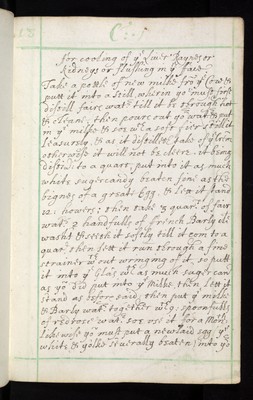 C:
for cooling of yᵉ liuer Raynes or
Kedneys or flushing in yᵉ face
Take a pottle of new milke fro yᵉ Cow &
putt it into a Still wherin you must first
distill faire watʳ till it be through hot
& cleane, then poure out yoʳ watʳ & putt
in yᵉ milke & soe wᵗʰ a soft fier distill it
leasurely, & as it distilleth take
otherwise it will not be cleere. it being
distild to a quart, put into it as much
white sugercandy beaten smal as the
bignes of a great Egg, & let it stand
howers: then take 3 quarᵗˢ of fair
watʳ 2 handfulls of french Barly
washt & seeth it softly till it com to a
quarᵗ then lett it run through a fine
strainer wᵗʰ out wringing of it, so putt
it into yᵉ Glas wᵗʰ as much suger can
as yᵒ did put into yᵉ Milke, then lett it
stand as before said, then put yᵉ milke
& Barly watʳ together wᵗʰ 9 spoonfulls
of red rose watʳ soe use it for a Month
likewise yᵒ must put a new laid egg yᵉ
white & yolke severally beaten into yᵒ